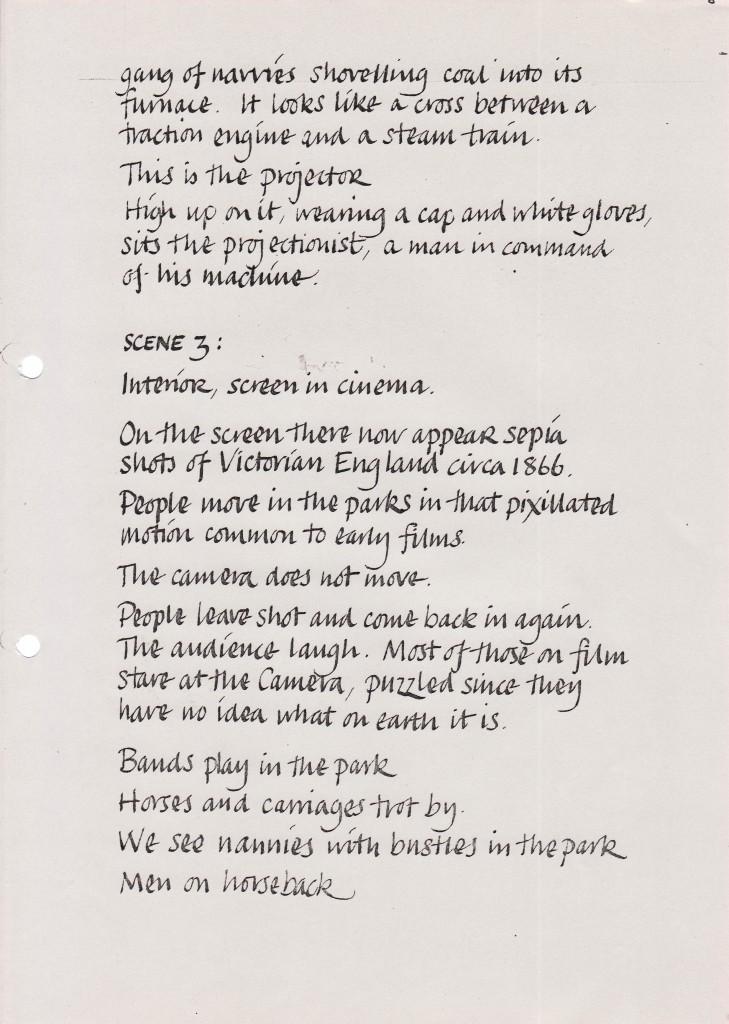 gang of navvies shovelling coal into its
furnace. It looks like a cross between a
traction engine and a steam train.
This is the projector
High up on it, wearing a cap and white gloves,
sits the projectionist, a man in command
of his machine.
SCENE 3:
Interior, screen in cinema.
On the screen there now appear sepia
shots of Victorian England circa 1866.
People move in the parks in that pixillated
motion common to early films.
The camera does not move.
People leave shot and come back in again.
The audience laugh. Most of those on film
stare at the Camera, puzzled since they
have no idea what on earth it is.
Bands play in the park
Horses and carriages trot by.
We see nannies with bustles in the park
Men on horseback